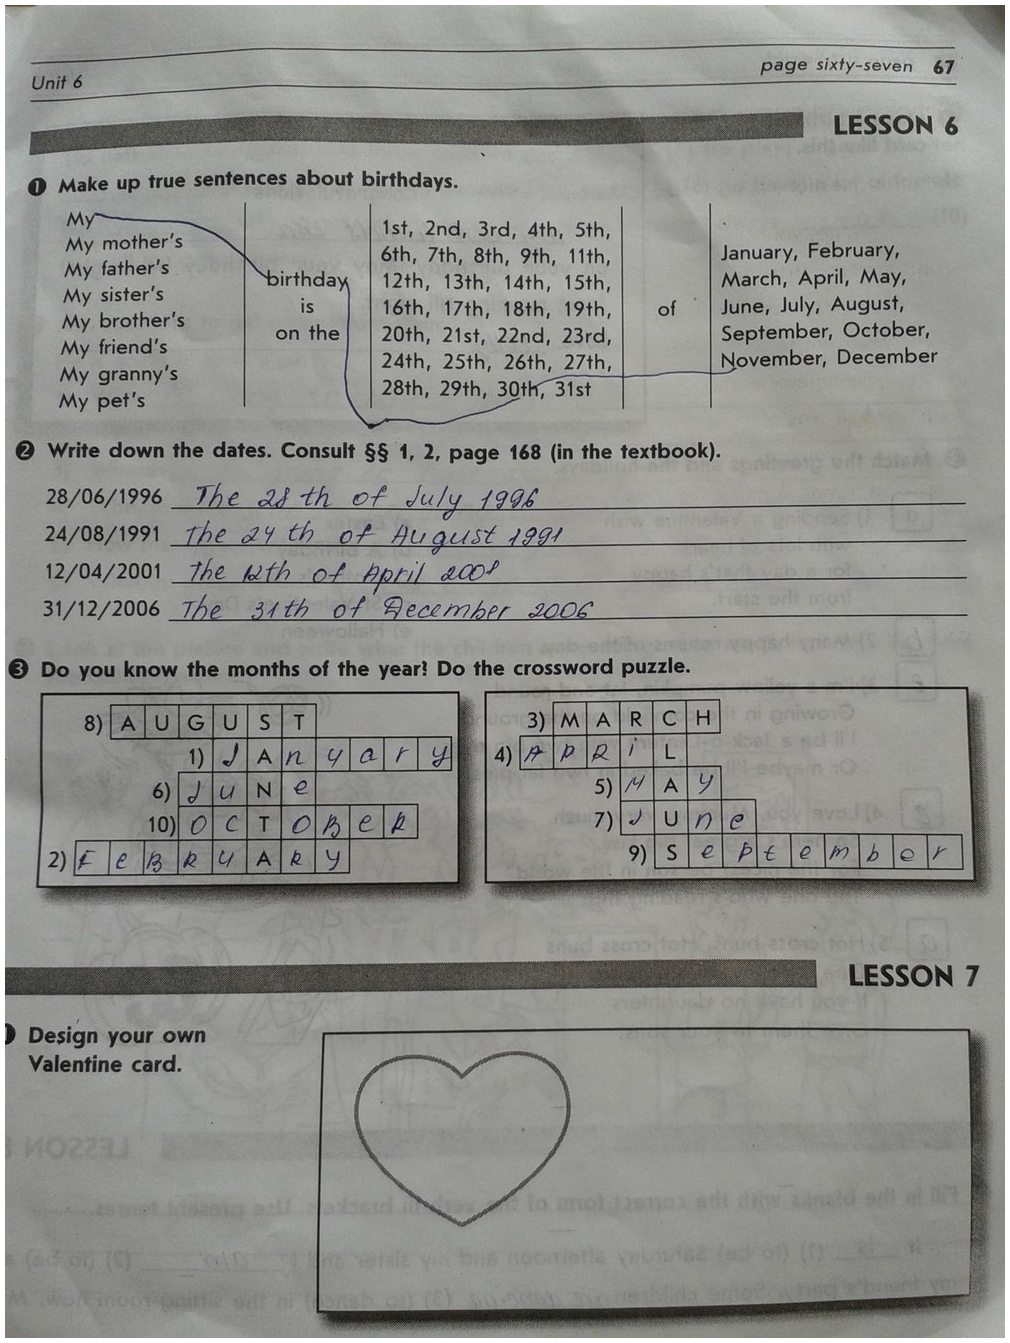 Unit 6
page sixty-seven 67
LESSON 6
1 Make up true sentences about birthdays.
My
My mother's
My father's
My sister's
My brother's
My friend's
My granny's
My pet's
birthday
is
on the
1st, 2nd, 3rd, 4th, 5th,
6th, 7th, 8th, 9th, 11th,
12th, 13th, 14th, 15th,
16th, 17th, 18th, 19th,
20th, 21st, 22nd, 23rd,
24th, 25th, 26th, 27th,
28th, 29th, 30th, 31st
of
January, February,
March, April, May,
June, July, August,
September, October,
November, December
2 Write down the dates. Consult §§ 1, 2, page 168 (in the textbook).
28/06/1996 The 28 th of July 1996
24/08/1991 The 24 th of August 1991
12/04/2001 The 12th of April 2001
31/12/2006 The 31th of December 2006
3 Do you know the months of the year? Do the crossword puzzle.
8) AUGUST
1) JAnyary
6) JuNe
10) OCTOBeR
2) FeBRyARy
3) MARCH
4) APRiL
5) MAy
7) JUne
9) September
LESSON 7
Design your own
Valentine card.